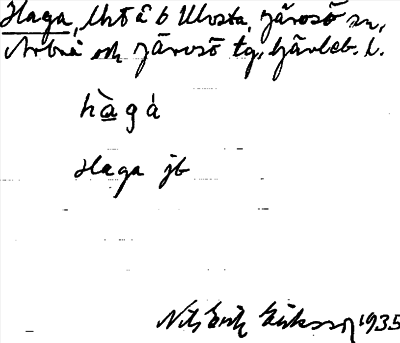 Haga, lht å 6 Ulvsta, Järvsö sn,
Arbrå och Järvsö tg, Gävleb. l.
hàgá
Haga jb
Nils Erik Eriksson 1935